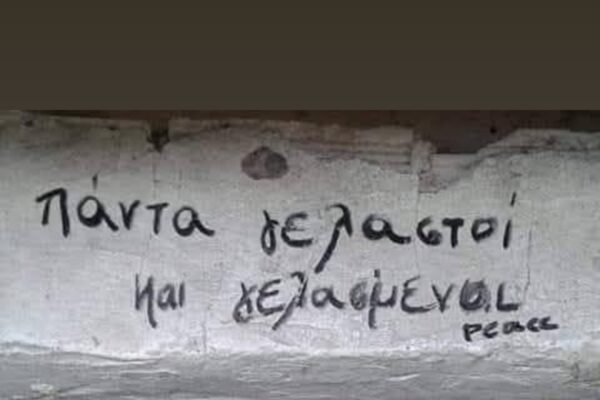 πάντα γελαστοί
και γελασμένοι
peace